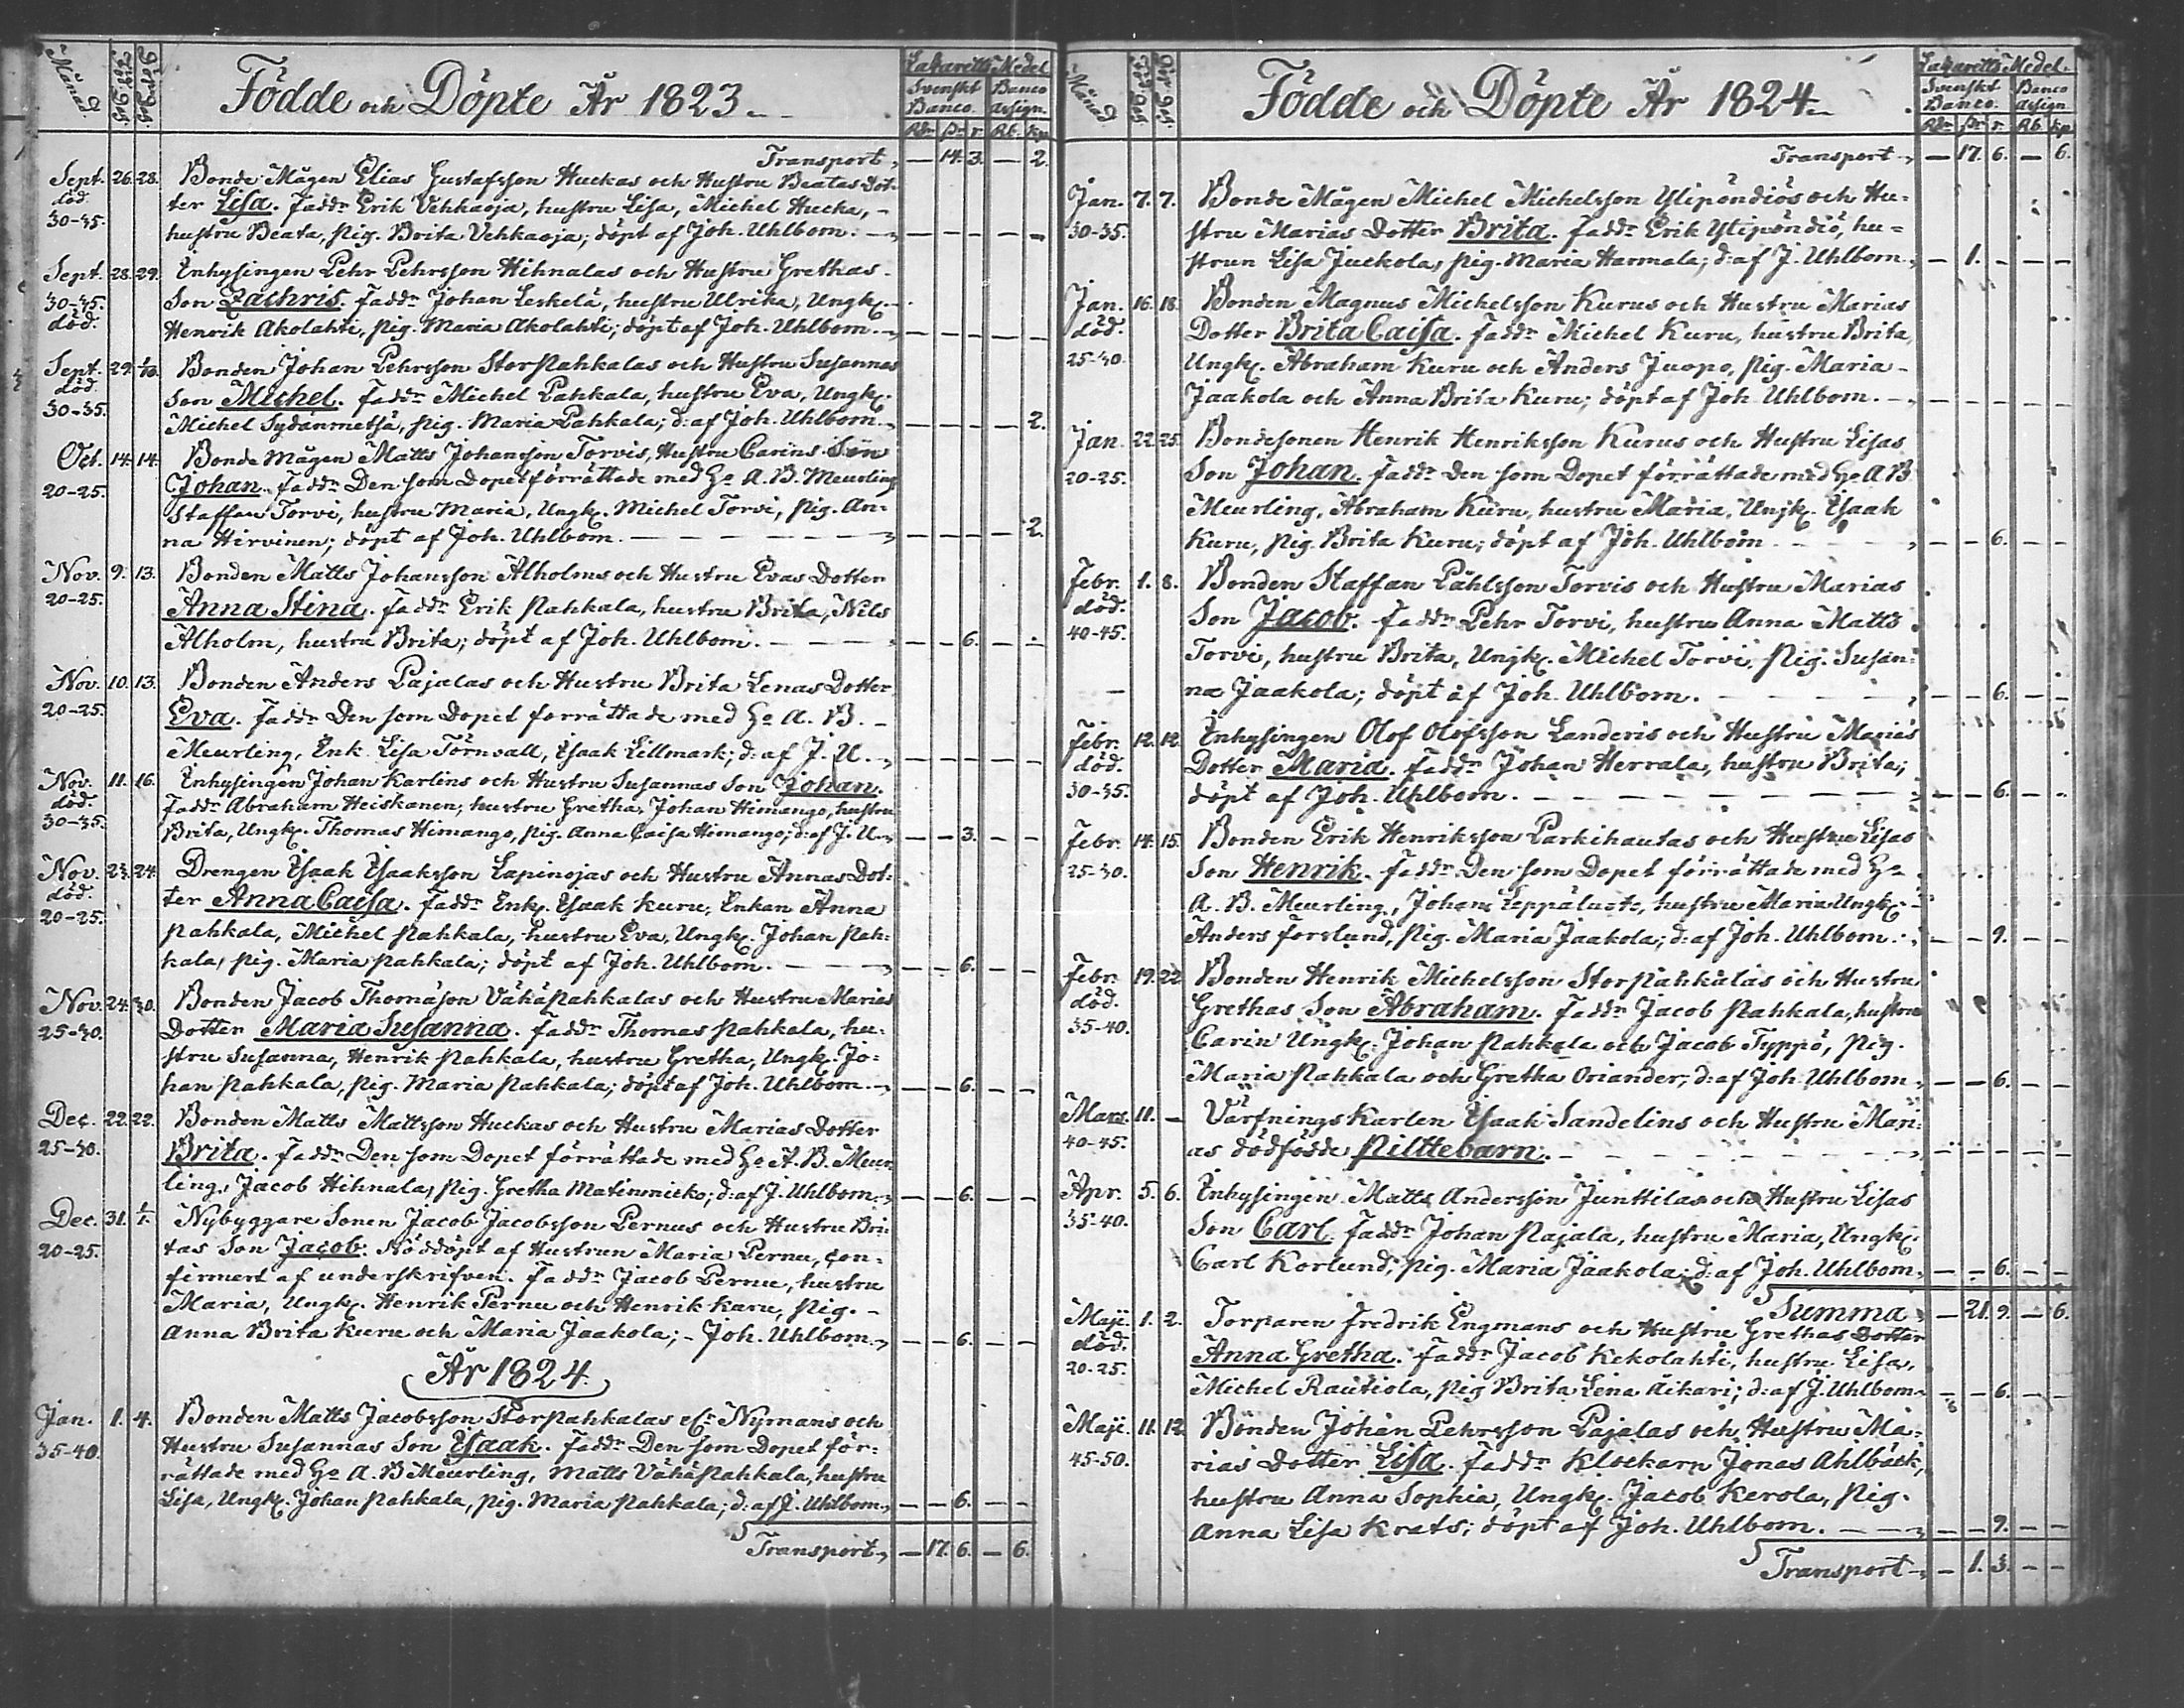 Månad.
Föd. dag.
Döp. dag.
Födde och Döpte År 1823.
Lazaretts Medel
Svenskt Banco.
Banco Assign.
Rdr ß r. Rb. kp
Transport, — 14. 3. — 2.
Sept. 26. 28. Bonde Mågen Elias Gustafsson Huckas och Hustru Beatas Dot-
död. ter Lisa. Faddr Erik Vehkaoja, hustru Lisa, Michel Hucka, -
30-35. hustru Beata, pig. Brita Vehkaoja; döpt af Joh. Uhlbom. — — — — — —
Sept. 28. 29. Enhysingen Pehr Pehrsson Hihnalas och Hustru Grethas
30-35. Son Zachris. Faddr Johan Leskelä, hustru Ulrika, Ungk.
död. Henrik Akolahti, pig. Maria Akolahti; döpt af Joh. Uhlbom. — — — — — —
Sept. 29. 1/10. Bonden Johan Pehrsson Storpahkalas och Hustru Susannas
död. Son Michel. Faddr Michel Pahkala, hustru Eva, Ungk.
30-35. Michel Sydänmetsä, pig. Maria Pahkala; d: af Joh. Uhlbom. — — — — 2.
Oct. 14. 14. Bonde Mågen Matts Johansson Torvis, Hustru Carins Son
20-25. Johan. Faddr Den som Dopet förrättade med Hr A. B. Meurling
Staffan Torvi, hustru Maria, Ungk. Michel Torvi, pig. An-
na Hirvinen; döpt af Joh. Uhlbom. — — — — — 2.
Nov. 9. 13. Bonden Matts Johansson Alholms och Hustru Evas Dotter
20-25. Anna Stina. Faddr Erik Pahkala, hustru Brita, Nils
Alholm, hustru Brita; döpt af Joh. Uhlbom. — — — 6. — —
Nov. 10. 13. Bonden Anders Pajalas och Hustru Brita Lenas Dotter
20-25. Eva. Faddr Den som Dopet förrättade med Hr A. B. -
Meurling, Enk. Lisa Törnvall, Isaak Lillmark; d: af J. U. — — — — —
Nov. 11. 16. Enhysingen Johan Karlins och Hustru Susannas Son Johan.
död. Faddr Abraham Heiskanen, hustru Gretha, Johan Himango, hustru
30-35. Brita, Ungk. Thomas Himango, pig. Anna Caisa Himango; d: af J. U. — — 3. — —
Nov. 23. 24. Drengen Isaak Isaaksson Lapinojas och Hustru Annas Dot-
död. ter Anna Caisa. Faddr Enk. Isaak Kuru, Enkan Anna
20-25. Pahkala, Michel Pahkala, hustru Eva, Ungk. Johan Pah-
kala, pig. Maria Pahkala; döpt af Joh. Uhlbom. — — — 6. — —
Nov. 24. 30. Bonden Jacob Thomäson Vähäpahkalas och Hustru Marias
25-30. Dotter Maria Susanna. Faddr Thomas Pahkala, hu-
stru Susanna, Henrik Pahkala, hustru Gretha, Ungk. Jo-
han Pahkala, pig. Maria Pahkala; döpt af Joh. Uhlbom. — — 6. — —
Dec. 22. 22. Bonden Matts Mattsson Huckas och Hustru Marias Dotter
25-30. Brita. Faddr Den som Dopet förrättade med Hr A. B. Meur-
ling, Jacob Hihnala, pig. Gretha Matinmicko; d: af J. Uhlbom. — — 6. — —
Dec. 31. 1/1. Nybyggare Sonen Jacob Jacobsson Pernus och Hustru Bri-
20-25. tas Son Jacob. Nöddöpt af Hustrun Maria Pernu, con-
firmert af underskrifven. Faddr Jacob Pernu, hustru
Maria, Ungk. Henrik Pernu och Henrik Karu, pig. -
Anna Brita Kuru och Maria Jaakola; - Joh. Uhlbom. — — 6. — —
År 1824.
Jan. 1. 4. Bonden Matts Jacobsson Storpahkalas elr Nymans och
35-40. Hustru Susannas Son Isaak. Faddr Den som Dopet för-
rättade med Hr A. B Meurling, Matts Vähäpahkala, hustru
Lisa, Ungk. Johan Pahkala, pig. Maria Pahkala; d: af J. Uhlbom. — — 6. — —
Transport, — 17. 6. — 6.
Månad
Föd. dag.
Döp. dag.
Födde och Döpte År 1824.
Lazaretts Medel.
Svenskt Banco.
Banco Assign
Rdr ß r. Rb. kp
Transport, — 17. 6. — 6.
Jan. 7. 7. Bonde Mågen Michel Michelsson Ylipöndiös och Hu-
30-35. stru Marias Dotter Brita. Faddr Erik Ylipöndiö, hu-
strun Lisa Juckola, pig. Maria Harmala; d: af J. Uhlbom. — 1. — — —
Jan. 16. 18. Bonden Magnus Michelsson Kurus och Hustru Marias
död. Dotter Brita Caisa. Faddr Michel Kuru, hustru Brita,
25-30. Ungk. Abraham Kuru och Anders Juopo, pig. Maria -
Jaakola och Anna Brita Kuru; döpt af Joh. Uhlbom. — — — — — —
Jan. 22. 25. Bondesonen Henrik Henriksson Kurus och Hustru Lisas
20-25. Son Johan. Faddr Den som Dopet förrättade med Hr A B
Meurling, Abraham Kuru, hustru Maria, Ungk. Isaak
Kuru, pig. Brita Kuru; döpt af Joh. Uhlbom — — — 6. — —
Febr. 1. 8. Bonden Staffan Påhlsson Torvis och Hustru Marias
död. Son Jacob. Faddr Pehr Torvi, hustru Anna Matts
40-45. Torvi, hustru Brita, Ungk. Michel Torvi, pig. Susan-
na Jaakola; döpt af Joh. Uhlbom. — — — 6. — —
Febr. 12. 12. Enhysingen Olof Olofsson Landeris och Hustru Marias
död. Dotter Maria. Faddr Johan Herrala, hustru Brita;
30-35. döpt af Joh. Uhlbom. — — — — — 6. — —
Febr. 14. 15. Bonden Erik Henriksson Parkihautas och Hustru Lisas
25-30. Son Henrik. Faddr Den som Dopet förrättade med Hr
A. B. Meurling, Johan Leppäluoto, hustru Maria Ungk.
Anders Forslund, pig. Maria Jaakola; d: af Joh. Uhlbom. — — 9. — —
Febr. 19. 22 Bonden Henrik Michelsson Storpahkalas och Hustru
död. Grethas Son Abraham. Faddr Jacob Pahkala, hustru
35-40. Carin Ungk. Johan Pahkala och Jacob Typpö, pig.
Maria Pahkala och Gretha Oriander; d: af Joh. Uhlbom — — 6. — —
Mars. 11. — Värfnings Karlen Isaak Sandelins och Hustru Mari-
40-45. as dödfödde Piltebarn. — — — — — — —
Apr. 5. 6. Enhysingen Matts Andersson Junttilas och Hustru Lisas
35-40. Son Carl. Faddr Johan Pajala, hustru Maria, Ungk.
Carl Korlund, pig. Maria Jaakola; d: af Joh. Uhlbom, — — 6. — —
Summa, — 21. 9. — 6.
Maji. 1. 2. Torparen Fredrik Engmans och Hustru Grethas Dotter
död. Anna Gretha. Faddr Jacob Kekolahti, hustru Lisa,
20-25. Michel Rautiola, pig Brita Lena Aikari; d: af J. Uhlbom. — — 6. — —
Maji. 11. 12 Bonden Johan Pehrsson Pajalas och Hustru Ma-
45-50. rias Dotter Lisa. Faddr Klockarn Jonas Ahlbäck,
hustru Anna Sophia, Ungk. Jacob Kerola, pig.
Anna Lisa Krats; döpt af Joh. Uhlbom. — — — 9. — —
Transport, — 1. 3. — —